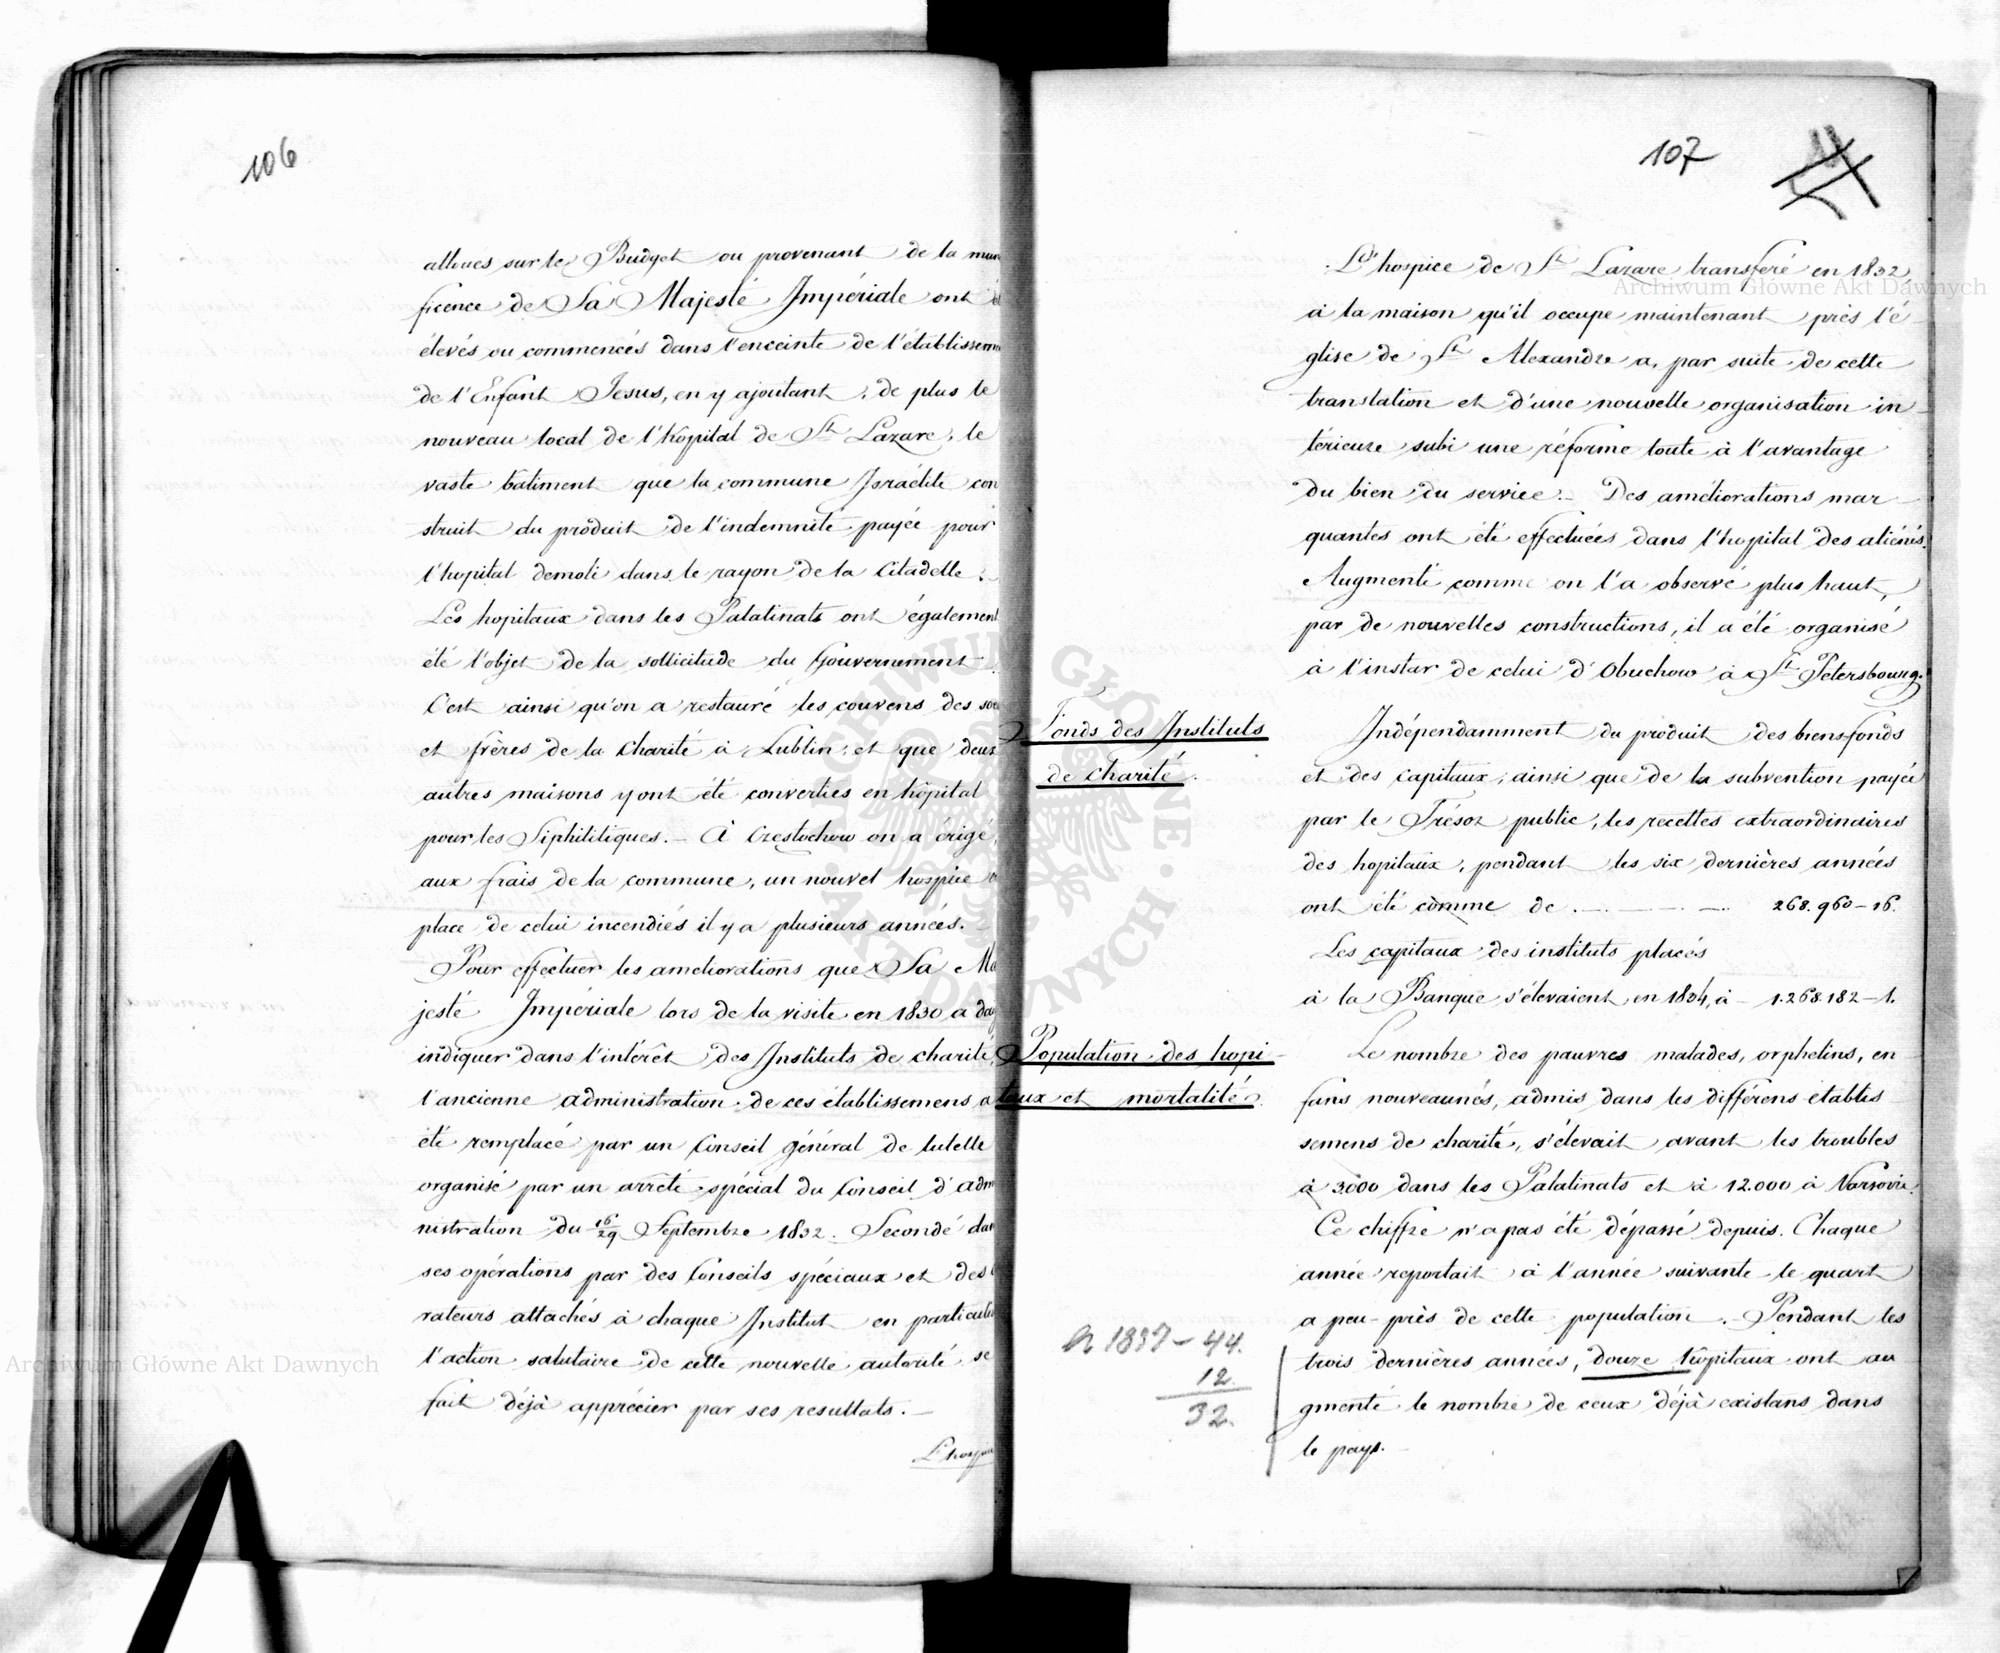 106
alloués sur le Budget ou provenant de la mun
ficence de Sa Majesté Impériale ont
élevés ou commencés dans l'enceinte de l'établisseme
de l'Enfant Jesus, en y ajoutant, de plus le
nouveau local de l'hopital de St Lazare, le
vaste bâtiment que la commune Israélite con
struit du produit de l'indemnité payée pour
l'hopital demoli dans le rayon de la Citadelle.
Les hopitaux dans les Palatinats ont également
été l'objet de la sollicitude du Gouvernement
C'est ainsi qu'on a restauré les couvens des soe
et frères de la Charité à Lublin, et que deux
autres maisons y ont été converties en hôpital
pour les Siphilitiques. – À Czestochow on a érigé,
aux frais de la commune, un nouvel hospice
place de celui incendiés il y a plusieurs années. –
Pour effectuer les ameliorations que Sa Ma
jesté Impériale lors de la visite en 1830 a dai
indiquer dans l'intérêt des Instituts de charité,
l'ancienne administration de ces établissemens a
été remplacé par un Conseil général de tutelle
organisé par un arrêté spécial du Conseil d'adm
nistration du 16/29 Septembre 1832. Secondé dan
ses opérations par des Conseils spéciaux et des
rateurs attachés à chaque Institut en particulie
l'action salutaire de cette nouvelle autorité se
fait déjà apprécier par ses resultats. –
L'hospice
107
L'hospice de St Lazare transferé en 1832,
à la maison qu'il occupe maintenant près l'é
glise de St Alexandre a, par suite de cette
translation et d'une nouvelle organisation in
térieure subi une réforme toute à l'avantage
du bien du service. – Des améliorations mar
quantes ont été effectuées dans l'hopital des aliénés.
Augmenté comme on l'a observé plus haut,
par de nouvelles constructions, il a été organisé
à l'instar de celui d'Obuchow à St Petersbourg.
Fonds des Instituts
de charité.
Indépendamment du produit des biens-fonds
et des capitaux, ainsi que de la subvention payée
par le Trésor public, les recettes extraordinaires
des hopitaux, pendant les six dernières années
ont été comme de . — — — 268.960–16.
Les capitaux des instituts placés
à la Banque s'élevaient en 1834, à – 1.268.182–1.
Population des hopi
taux et mortalité.
Le nombre des pauvres malades, orphelins, en
fans nouveaunés, admis dans les différens établis
semens de charité, s'élevait avant les troubles
à 3.000 dans les Palatinats et à 12.000 à Varsovie.
Ce chiffre n'a pas été dépassé depuis. Chaque
année reportait à l'année suivante le quart
a peu-près de cette population. Pendant les
trois dernières années, douze hopitaux ont au
gmenté le nombre de ceux déjà existans dans
le pays. –
1837 – 44.
12.
32.
Archiwum Główne Akt Dawnych
Archiwum Główne Akt Dawnych
ARCHIWUM GŁÓWNE · AKT DAWNYCH ·